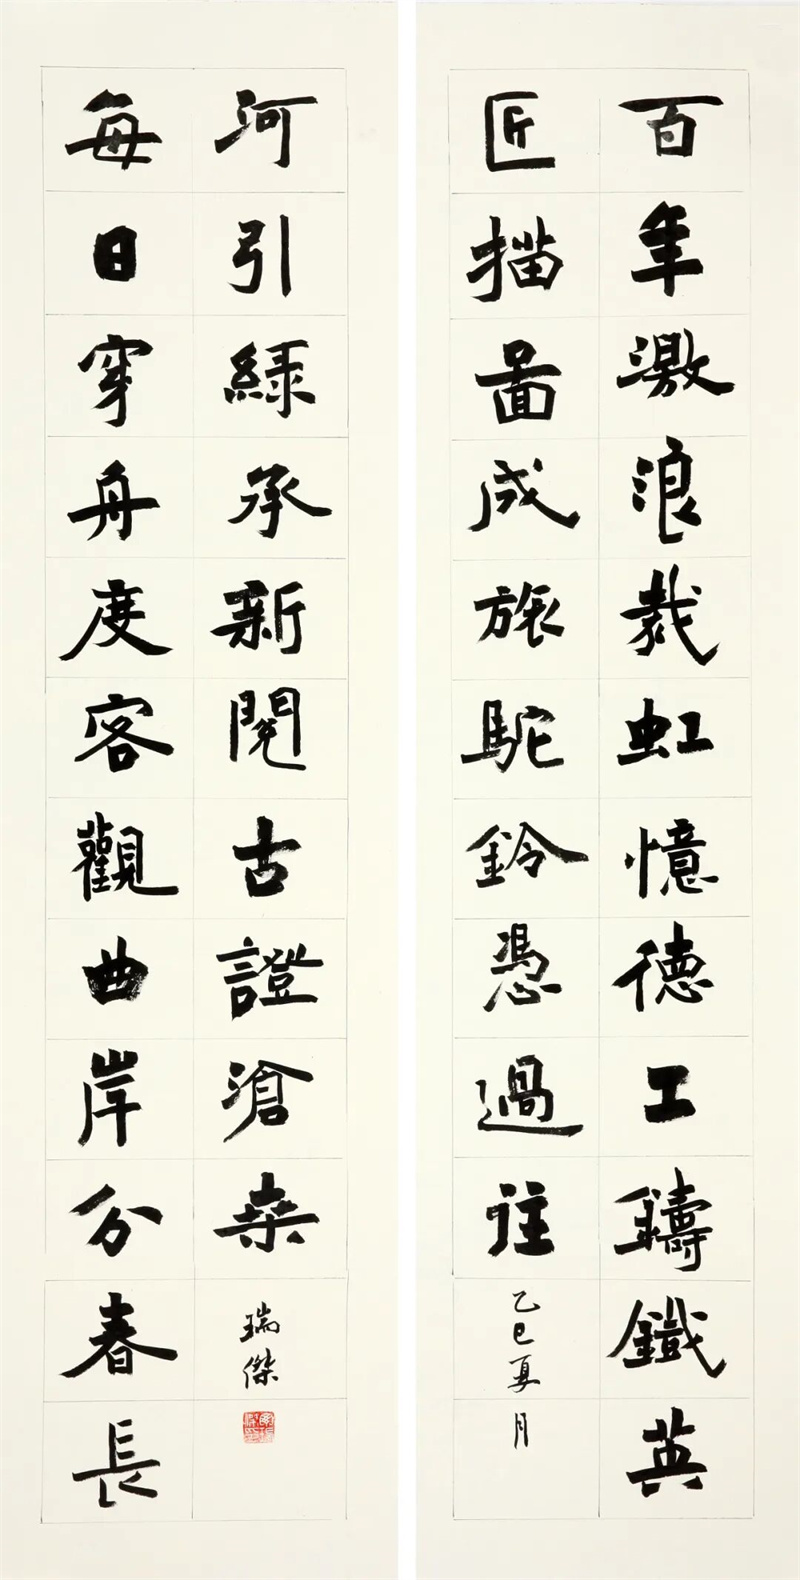 百年激浪裁虹憶德工鑄鐵英
匠描啚成旅駝鈴憑過往
乙巳夏月
每日穿舟度客觀曲岸分春長
河引綠承新閱古證滄桑
瑞傑